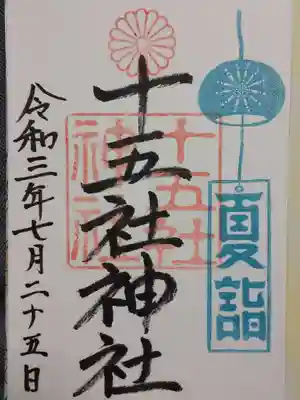 夏詣
十五社神社
十五社
神社
令和三年七月二十五日